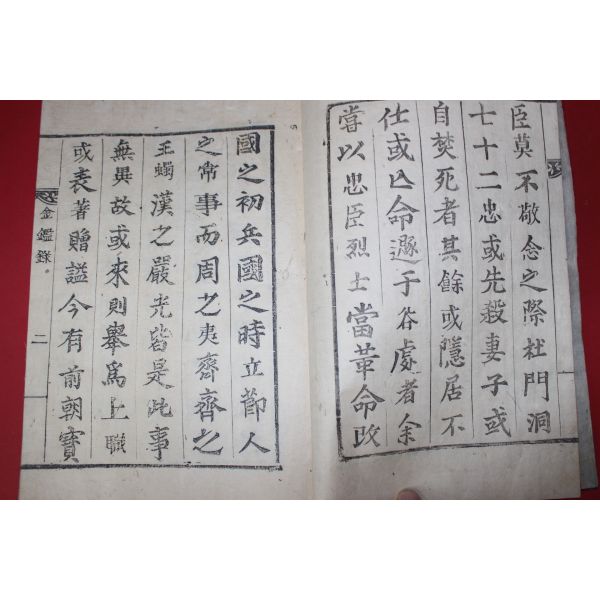 臣莫不敬念之際杜門洞
七十二忠或先殺妻子或
自焚死者其餘或隱居不
仕或亡命遯于谷處者余
嘗以忠臣烈士當革命改
國之初兵國之時立節人
之常事而周之夷齊齊之
王蠋漢之嚴光皆是此事
無異故或來則舉爲上職
或表著贈謚今有前朝寶
金鑑錄
二